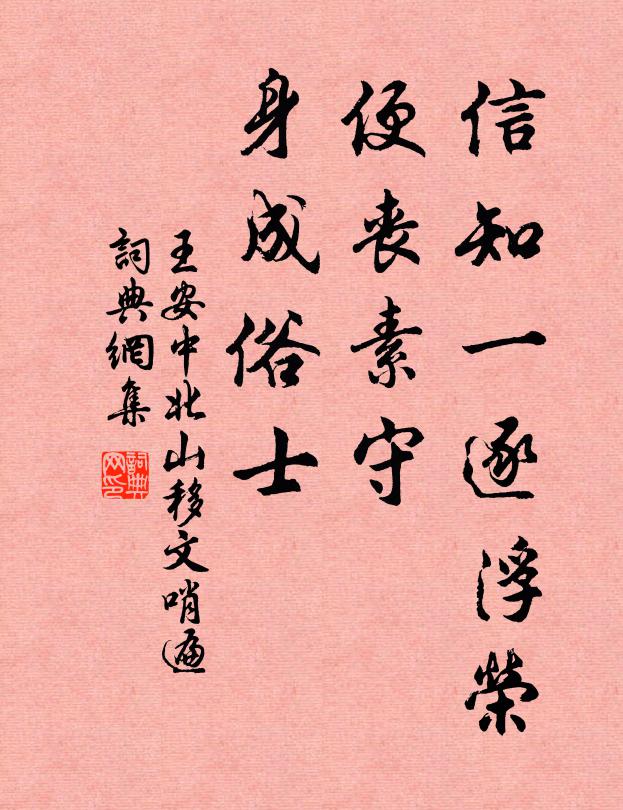 信知一逐浮榮
便喪素守
身成俗士
王安中北山移文哨遍
詞典網集
詞典
网印